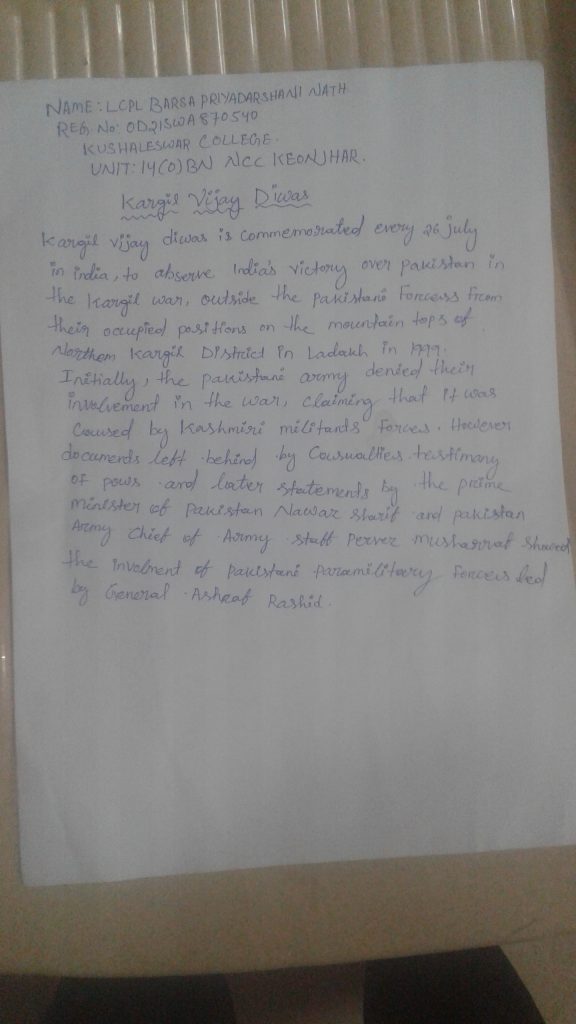 NAME : LCPL BARSA PRIYADARSHANI NATH
REG. No: OD21SWA870540
KUSHALESWAR COLLEGE.
UNIT: 14(O)BN NCC KEONJHAR.
Kargil Vijay Diwas
Kargil vijay diwas is commemorated every 26 july
in india, to observe India's victory over pakistan in
the kargil war, outside the pakistani forcess from
their occupied positions on the mountain tops of
Northern Kargil District in Ladakh in 1999.
Initially, the pakistani army denied their
involvement in the war, claiming that it was
caused by Kashmiri militands forces. However
documends left behind by Cousualties testimany
of pows and later statements by the prime
minister of pakistan Nawaz sharif and pakistan
Army Chief of Army staff Pervez musharraf showed
the involment of pakistani paramilitary forcess led
by General Ashraf Rashid.